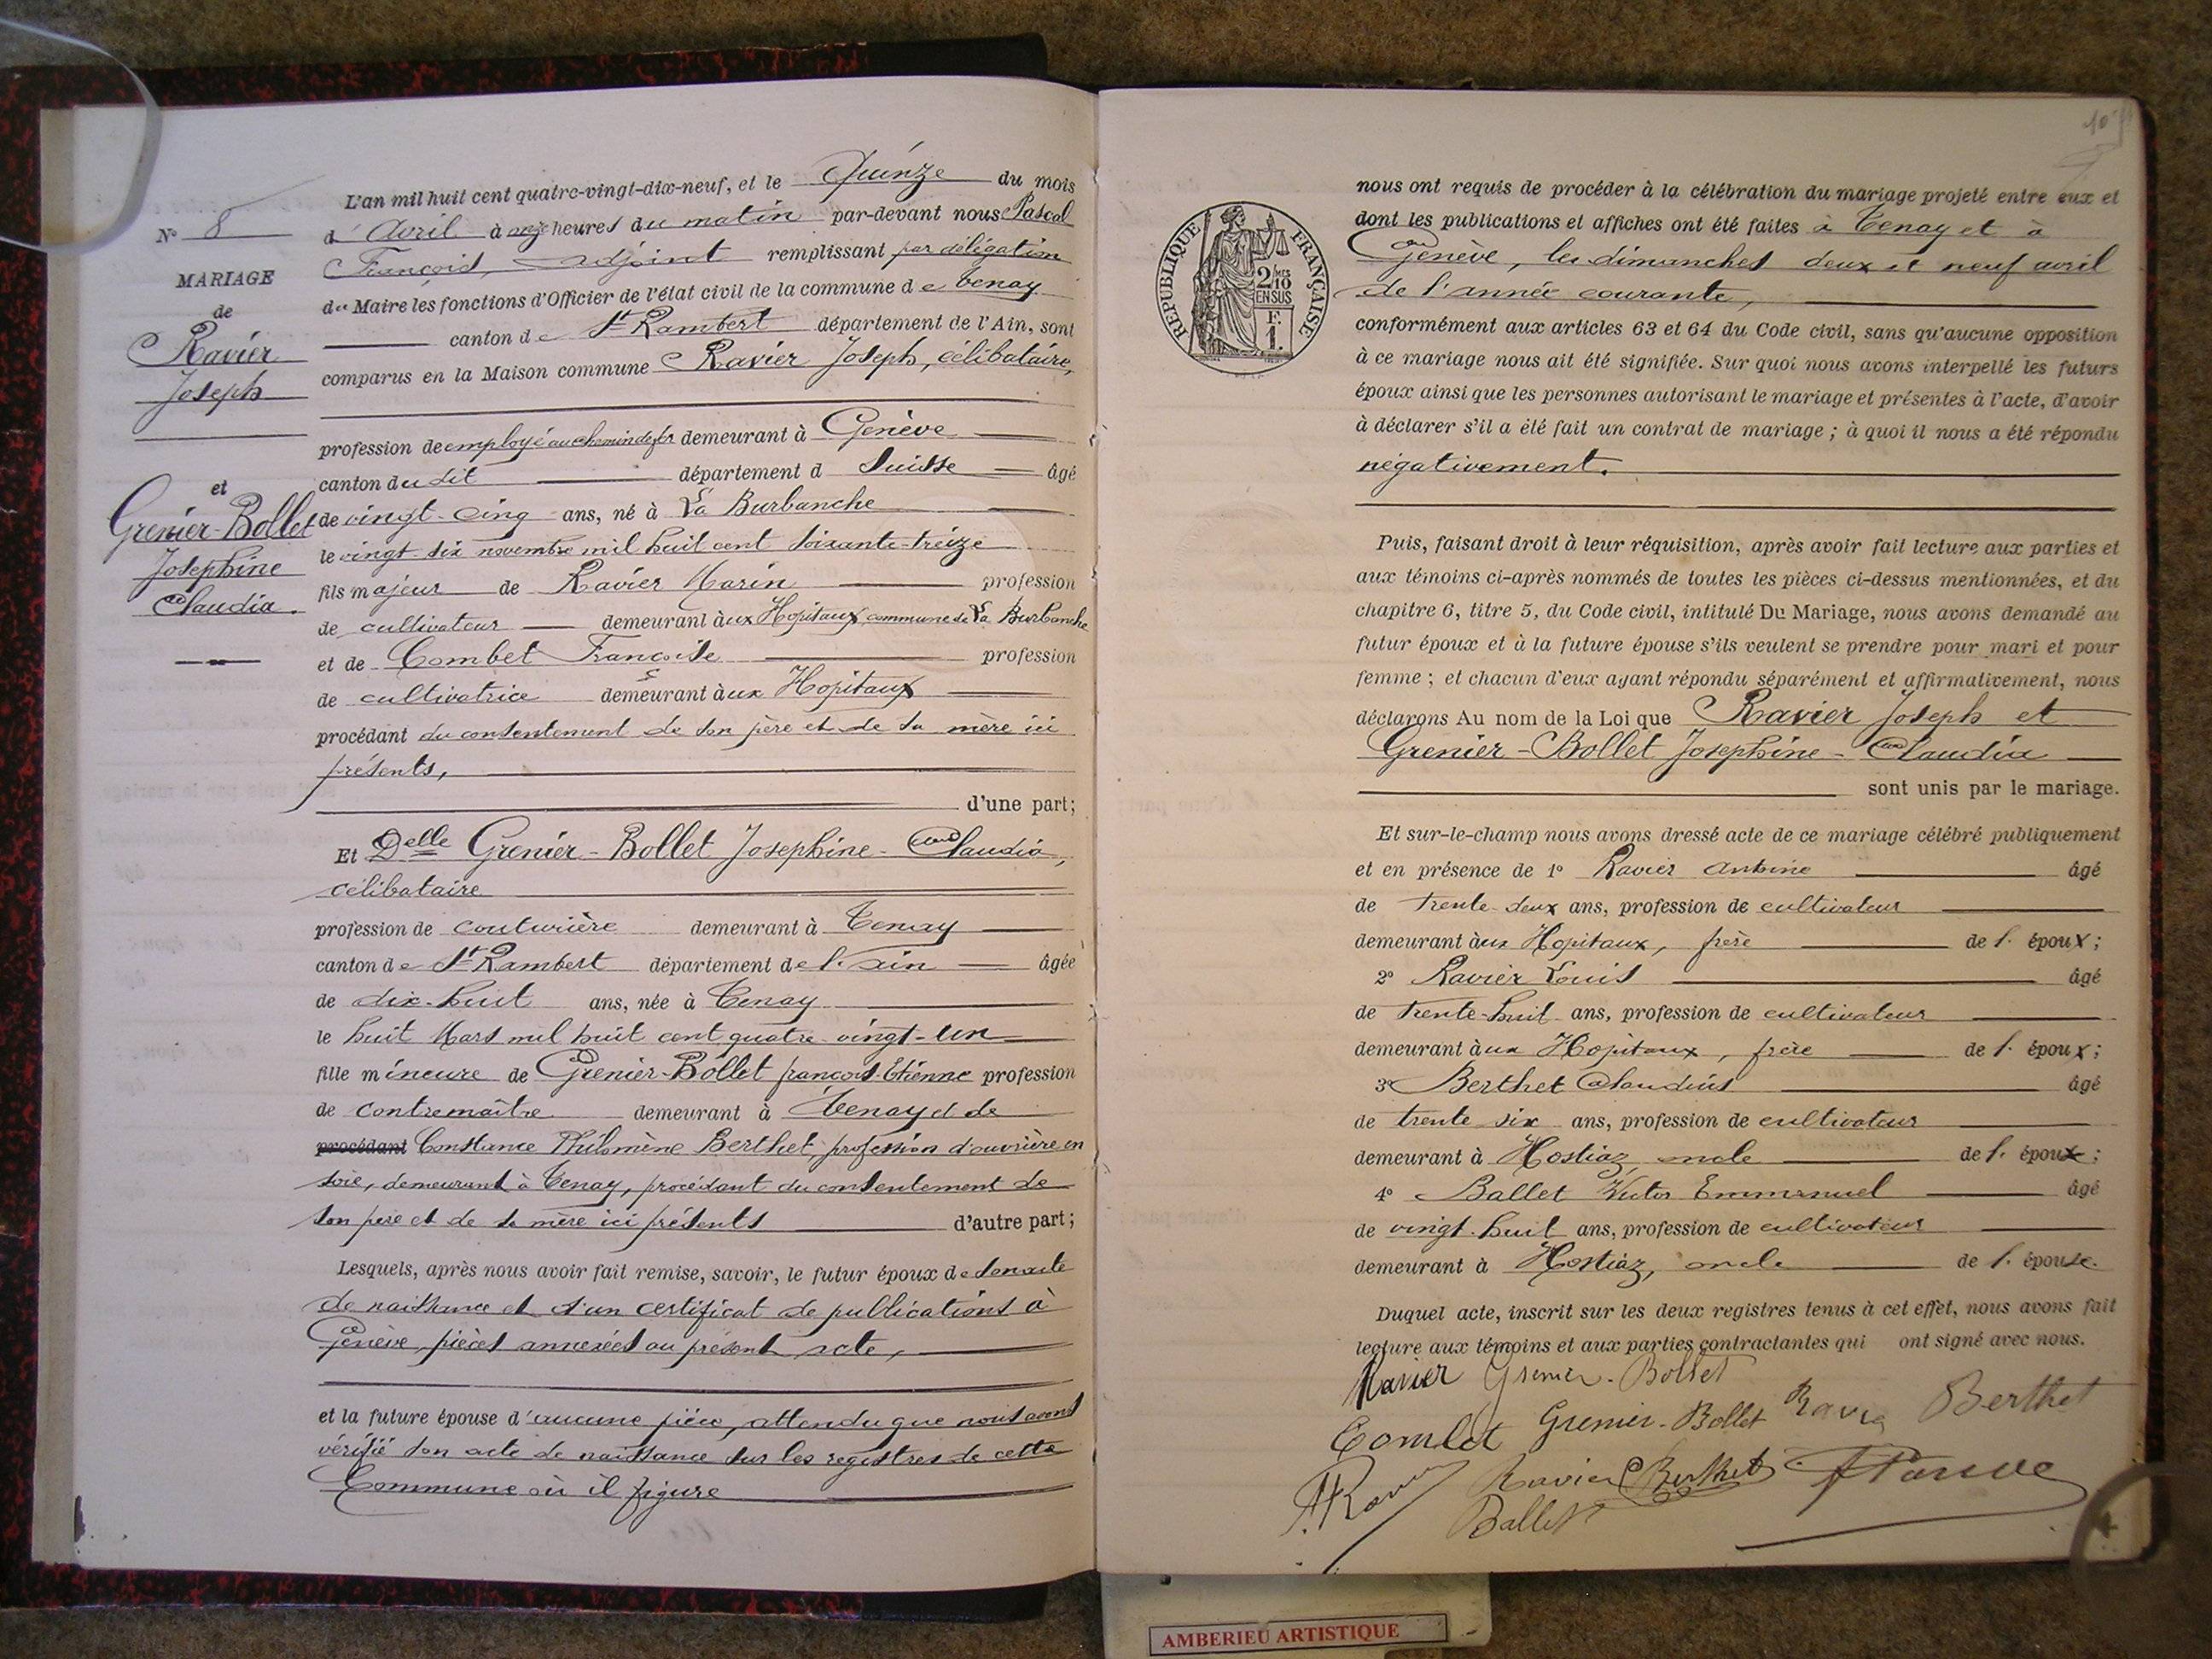 N° 8
MARIAGE
de
Ravier
Joseph
et
Grenier-Bollet
Joséphine
Claudia.
L'an mil huit cent quatre-vingt-dix-neuf, et le Quinze du mois
d'Avril à onze heures du matin par-devant nous Pascal
François, adjoint remplissant par délégation
du Maire les fonctions d'Officier de l'état civil de la commune de Tenay
canton de St Rambert département de l'Ain, sont
comparus en la Maison commune Ravier Joseph, célibataire,
profession de employé au chemin de fer demeurant à Genève
canton du dit département d Suisse âgé
de vingt-cinq ans, né à La Burbanche
le vingt-six novembre mil huit cent soixante-treize
fils majeur de Ravier Marin profession
de cultivateur demeurant àux Hopitaux commune de La Burbanche
et de Combet Françoise profession
de cultivatrice demeurant àux Hopitaux
procédant du consentement de son père et de sa mère ici
présents,
d'une part;
Et Delle Grenier-Bollet Joséphine-Claudia,
célibataire
profession de couturière demeurant à Tenay
canton de St Rambert département de l'Ain âgée
de dix-huit ans, née à Tenay
le huit Mars mil huit cent quatre-vingt-un
fille mineure de Grenier-Bollet françois-Etienne profession
de contremaître demeurant à Tenay et de
procédant Constance Philomène Berthet, profession d'ouvrière en
soie, demeurant à Tenay, procédant du consentement de
son père et de sa mère ici présents d'autre part;
Lesquels, après nous avoir fait remise, savoir, le futur époux de son acte
de naissance et d'un certificat de publications à
Genève, pièces annexées au présent acte,
et la future épouse d'aucune pièce, attendu que nous avons
vérifié son acte de naissance sur les registres de cette
Commune où il figure
10
RÉPUBLIQUE FRANÇAISE
2/10 MES
EN SUS
F.
1.
nous ont requis de procéder à la célébration du mariage projeté entre eux et
dont les publications et affiches ont été faites à Tenay et à
Genève, les dimanches deux et neuf avril
de l'année courante,
conformément aux articles 63 et 64 du Code civil, sans qu'aucune opposition
à ce mariage nous ait été signifiée. Sur quoi nous avons interpellé les futurs
époux ainsi que les personnes autorisant le mariage et présentes à l'acte, d'avoir
à déclarer s'il a été fait un contrat de mariage ; à quoi il nous a été répondu
négativement.
Puis, faisant droit à leur réquisition, après avoir fait lecture aux parties et
aux témoins ci-après nommés de toutes les pièces ci-dessus mentionnées, et du
chapitre 6, titre 5, du Code civil, intitulé Du Mariage, nous avons demandé au
futur époux et à la future épouse s'ils veulent se prendre pour mari et pour
femme ; et chacun d'eux ayant répondu séparément et affirmativement, nous
déclarons Au nom de la Loi que Ravier Joseph et
Grenier-Bollet Joséphine-Claudia
sont unis par le mariage.
Et sur-le-champ nous avons dressé acte de ce mariage célébré publiquement
et en présence de 1° Ravier Antoine âgé
de trente-deux ans, profession de cultivateur
demeurant àux Hopitaux, frère de l'époux;
2° Ravier Louis âgé
de trente-huit ans, profession de cultivateur
demeurant àux Hopitaux, frère de l'époux;
3° Berthet Claudius âgé
de trente six ans, profession de cultivateur
demeurant à Hostiaz, oncle de l'époux;
4° Ballet Victor Emmanuel âgé
de vingt-huit ans, profession de cultivateur
demeurant à Hostiaz, oncle de l'épouse.
Duquel acte, inscrit sur les deux registres tenus à cet effet, nous avons fait
lecture aux témoins et aux parties contractantes qui ont signé avec nous.
Ravier Grenier-Bollet
Combet Grenier-Bollet Berthet
Ravier Berthet
Ballet
AMBERIEU ARTISTIQUE